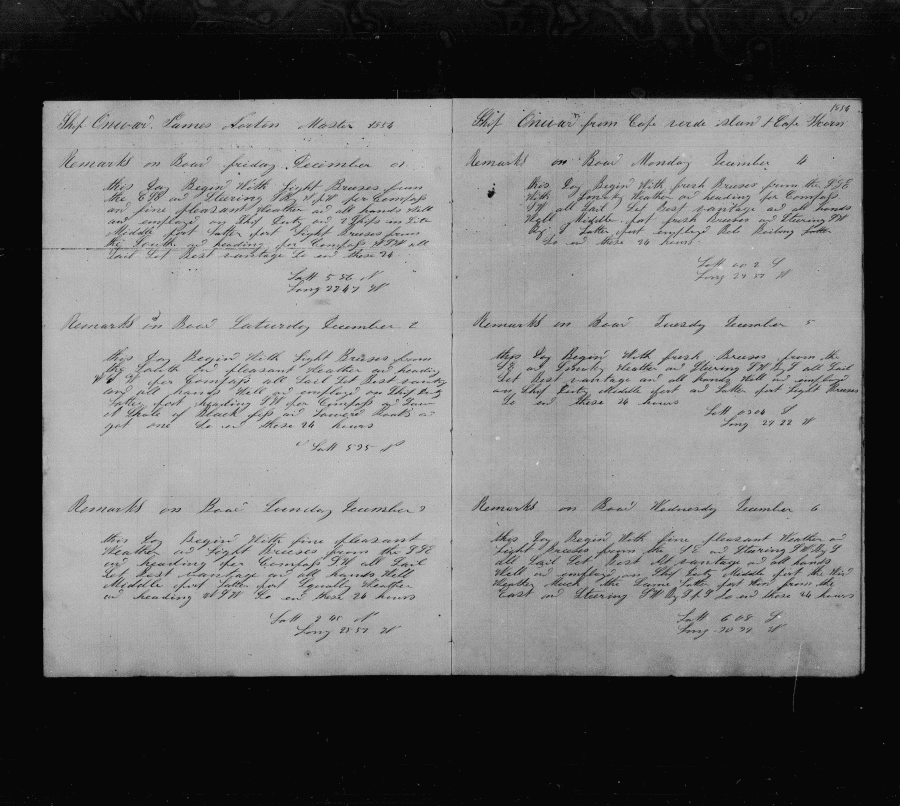 Ship Onward. James Norton Master 1854
Remarks on Board friday December 01
this Day Begins With Light Breeses from
the and Steering per Compass
and fine pleasant Weather and all hands Well
and employed on Ship Duty and 2 Ships in Site
Middle part Latter part Light Breeses from
the South and heading per Compass all
Sail Set Best vantage So end these 24
Latt 5 56 N
Long 27 47 W
Remarks on Board Saturday December 2
this Day Begins With Light Breeses from
the South and pleasant Weather and heading
per Compass all Sail Set Best vantage
and all hands Well and employed on Ship Duty
Latter part heading SW per Compass and
a Shole of Black fish and Lowered Boats and
got one So end these 24 hours
Latt 5 35 N
Remarks on Board Sunday December 3
this Day Begins With fine pleasant
Weather and Light Breeses from the SSE
and heading per Compass SW all Sail
Set Best vantage and all hands Well
Middle part Latter part Squally Weather
and heading So end these 24 hours
Latt 2 45 N
Long W
1854
Ship Onward from Cape verde island to Cape Thorn
Remarks on Board Monday December 4
this Day Begins With fresh Breeses from the SSE
With Weather and heading per Compass
SW all Sail Set Best vantage and all hands
Well Middle part fresh Breeses and Steering SW
By S Latter part employed Boiling
So end these 24 hours
Latt 00 2 S
Long W
Remarks on Board Tuesday December 5
this Day Begins With fresh Breeses from the
SE and Weather and Steering SW By S all Sail
Set Best vantage and all hands Well and employed
on Ship Duty Middle part and Latter part Light Breeses
So end these 24 hours
Latt S
Long 29 22 W
Remarks on Board Wednesday December 6
this Day Begins With fine pleasant Weather and
Light Breeses from the SE and Steering SW By S
all Sail Set Best vantage and all hands
Well and employed on Ship Duty Middle part the Wind
Weather Much the Same Latter part Wind from the
East and Steering SW By S So end these 24 hours
Latt 6 08 S
Long W